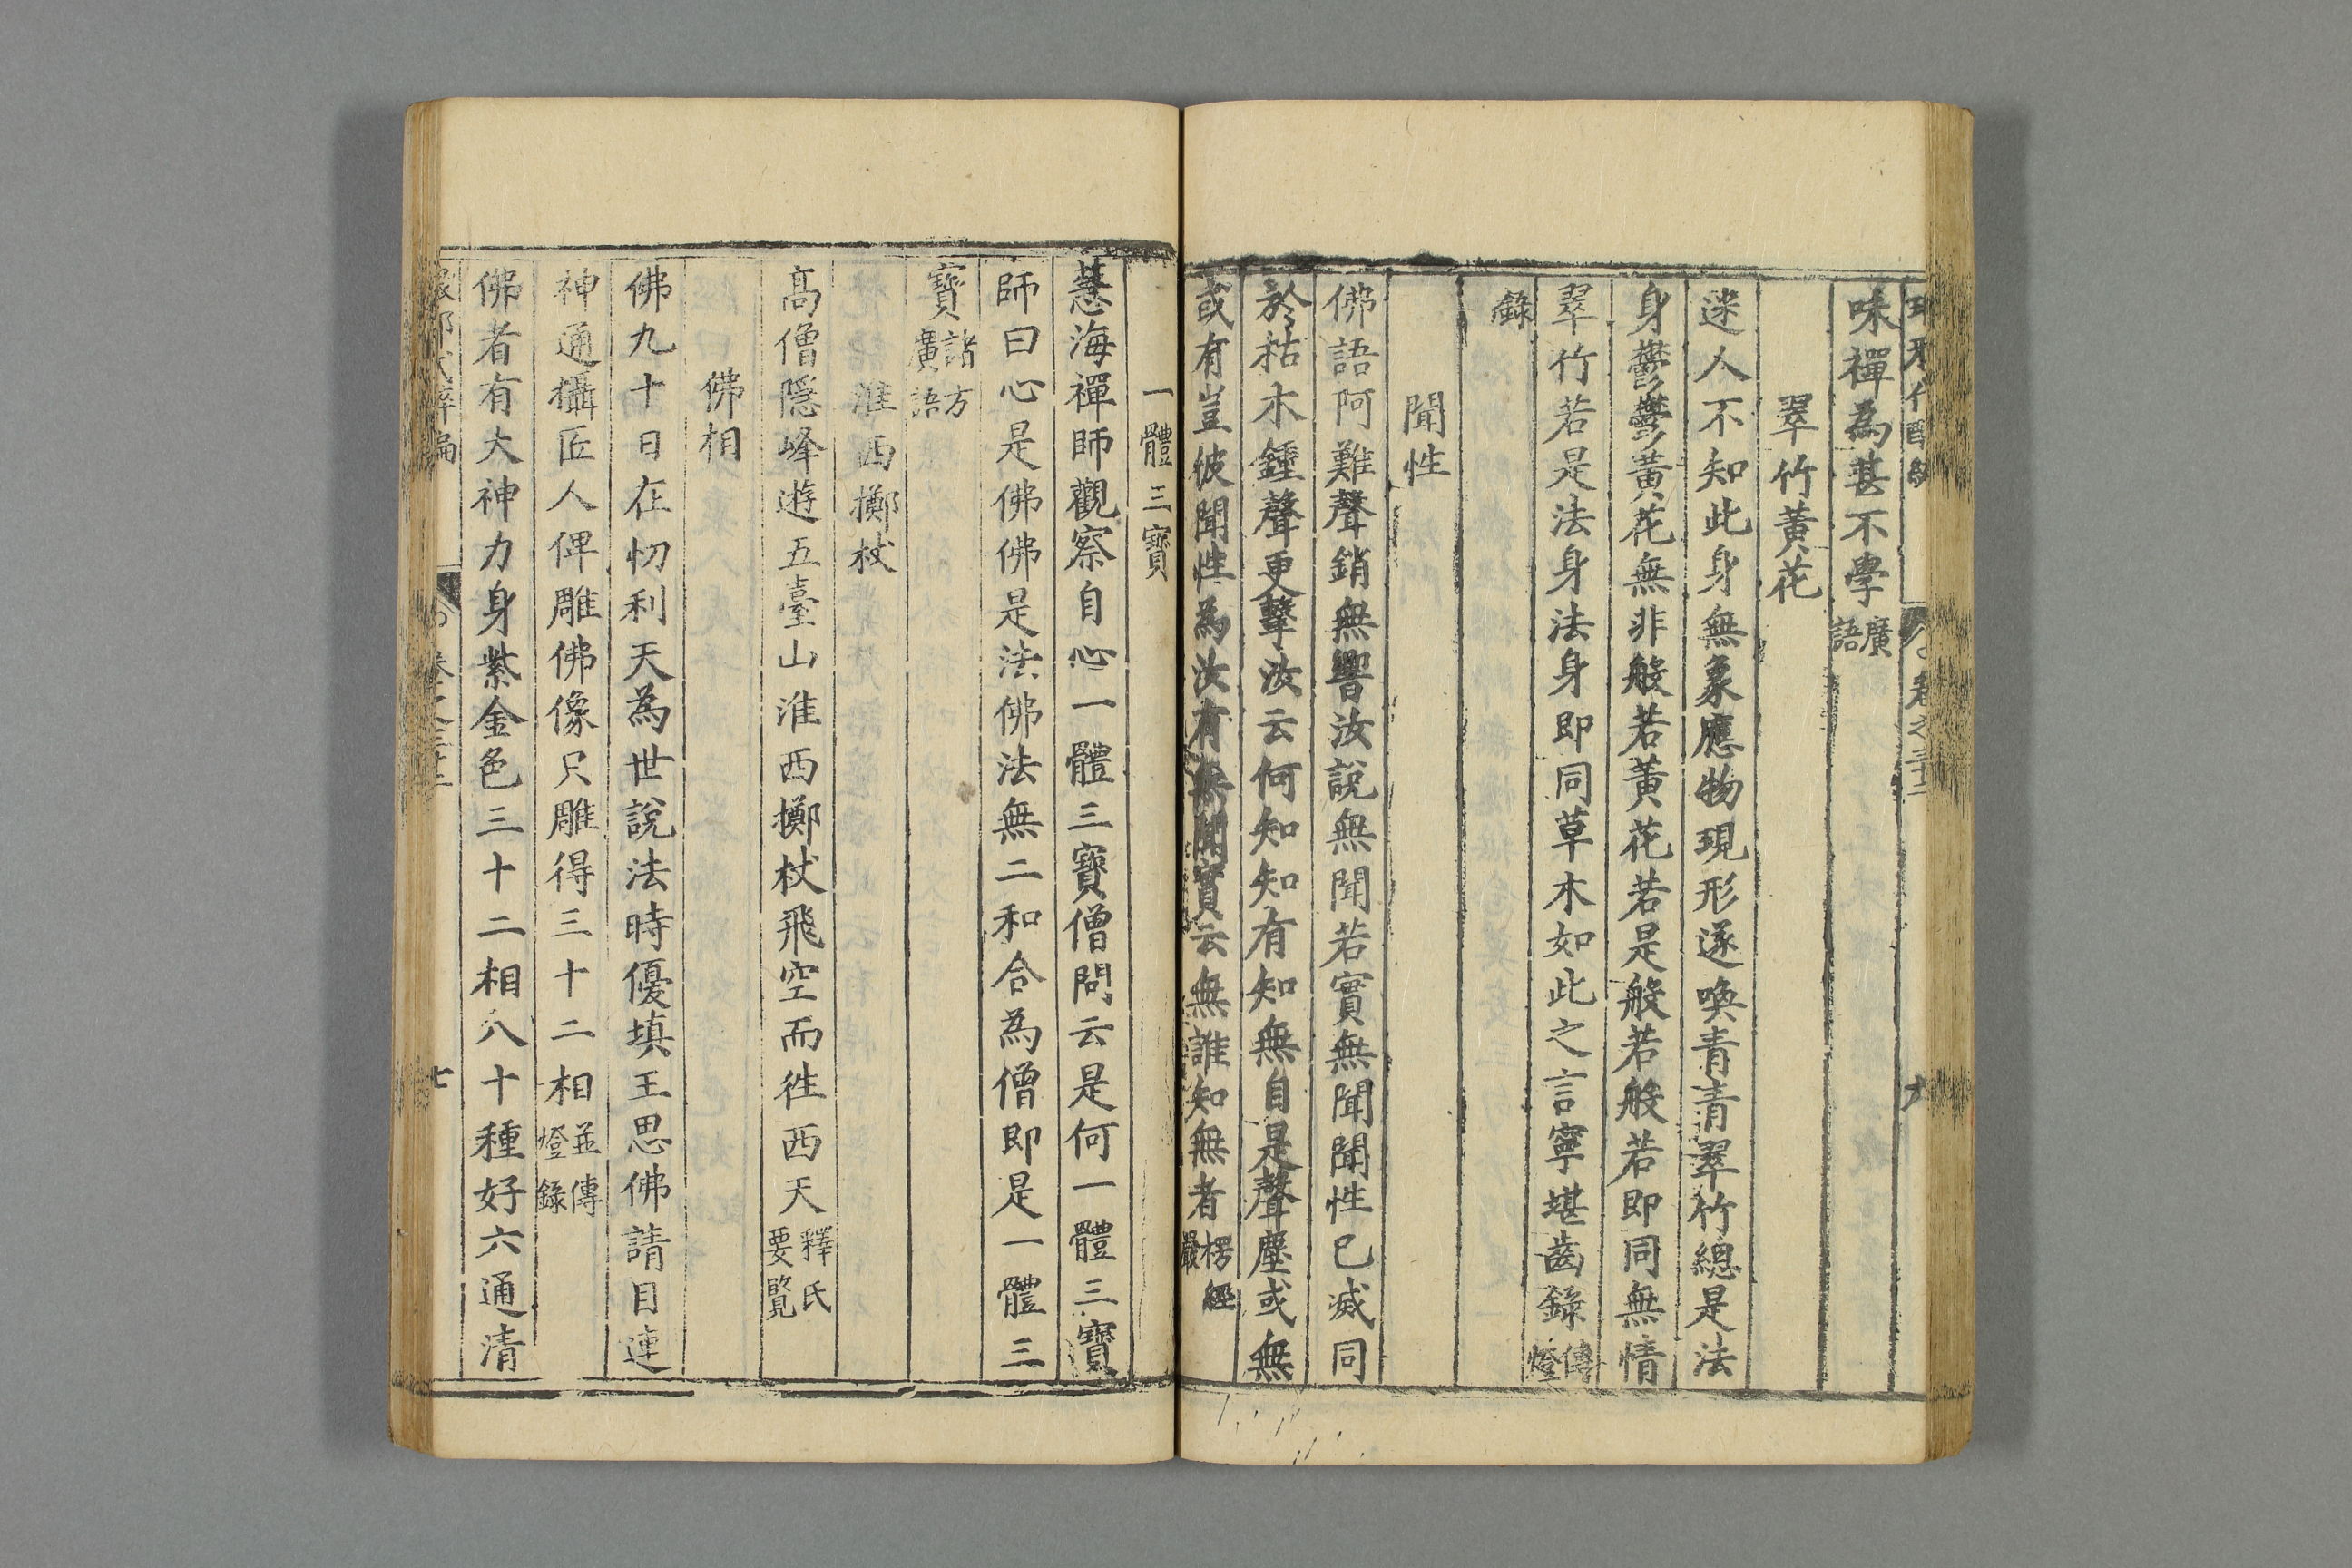 味禪為甚不學廣語
翠竹黃花
迷人不知此身無象應物現形遂喚青青翠竹總是法
身鬱鬱黃花無非般若黃花若是般若般若即同無情
翠竹若是法身法身即同草木如此之言寧堪齒錄傳燈
錄
聞性
佛語阿難聲銷無響汝說無聞若實無聞聞性已滅同
於枯木鍾聲更擊汝云何知知有知無自是聲塵或無
或有豈彼聞性為汝有無聞實云無誰知無者楞嚴經
一體三寶
慧海禪師觀察自心一體三寶僧問云是何一體三寶
師曰心是佛佛是法佛法無二和合為僧即是一體三
寶諸方廣語
淮西擲杖
高僧隱峰遊五臺山淮西擲杖飛空而徃西天釋氏要覽
佛相
佛九十日在忉利天為世說法時優填王思佛請目連
神通攝匠人俾雕佛像只雕得三十二相並傳燈錄
佛者有大神力身紫金色三十二相八十種好六通清
卷之三十二 七